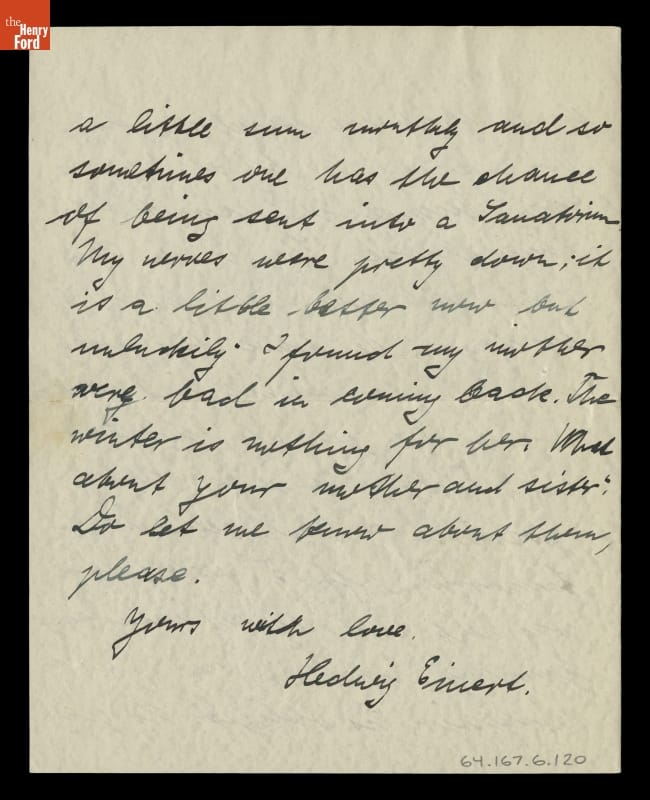 the
Henry
Ford
a little sum monthly and so
sometimes one has the chance
of being sent into a Sanatorium.
My nerves were pretty down; it
is a little better now but
unluckily I found my mother
very bad in coming back. The
winter is nothing for her. What
about your mother and sister?
Do let me know about them,
please.
Yours with love.
Hedwig Einert.
64.167.6.120